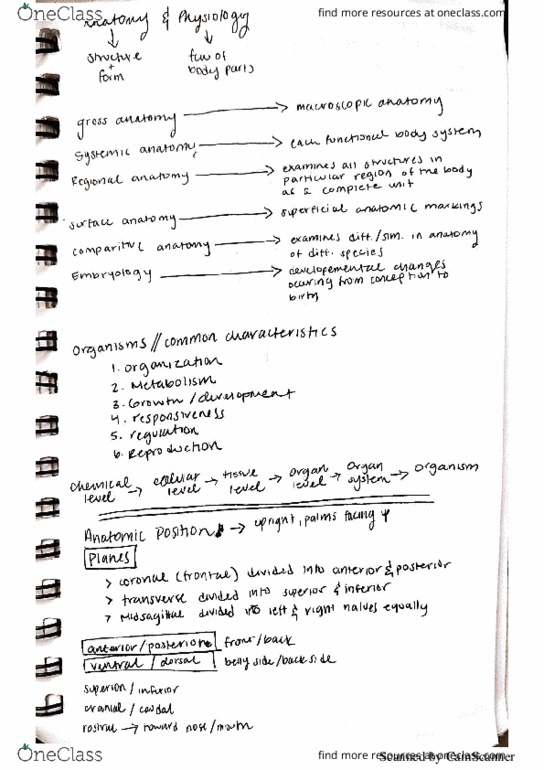 OneClass
find more resources at oneclass.com
Anatomy & Physiology
structure + form
func of body parts
gross anatomy → macroscopic anatomy
Systemic anatomy → each functional body system
Regional anatomy → examines all structures in
particular region of the body
as a complete unit
surface anatomy → superficial anatomic markings
comparitive anatomy → examines diff./sim. in anatomy
of diff. species
Embryology → developemental changes
occuring from conception to
birth
Organisms // common characteristics
1. organization
2. Metabolism
3. Growth / development
4. responsiveness
5. regulation
6. Reproduction
Chemical level → cellular level → tissue level → organ level → Organ system → organism
Anatomic Position → upright, palms facing ↑
Planes
> coronal (frontal) divided into anterior & posterior
> transverse divided into superior & inferior
> Midsagittal divided into left & right halves equally
anterior/posterior front/back
ventral / dorsal belly side/back side
superior / inferior
cranial / caudal
rostral → toward nose/mouth
OneClass
find more resources at oneclass.com
Scanned by CamScanner